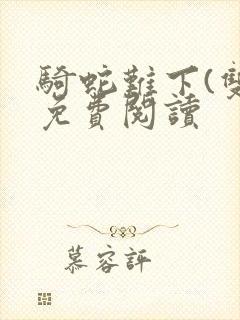 騎蛇難下(雙
免費閱讀
慕容評